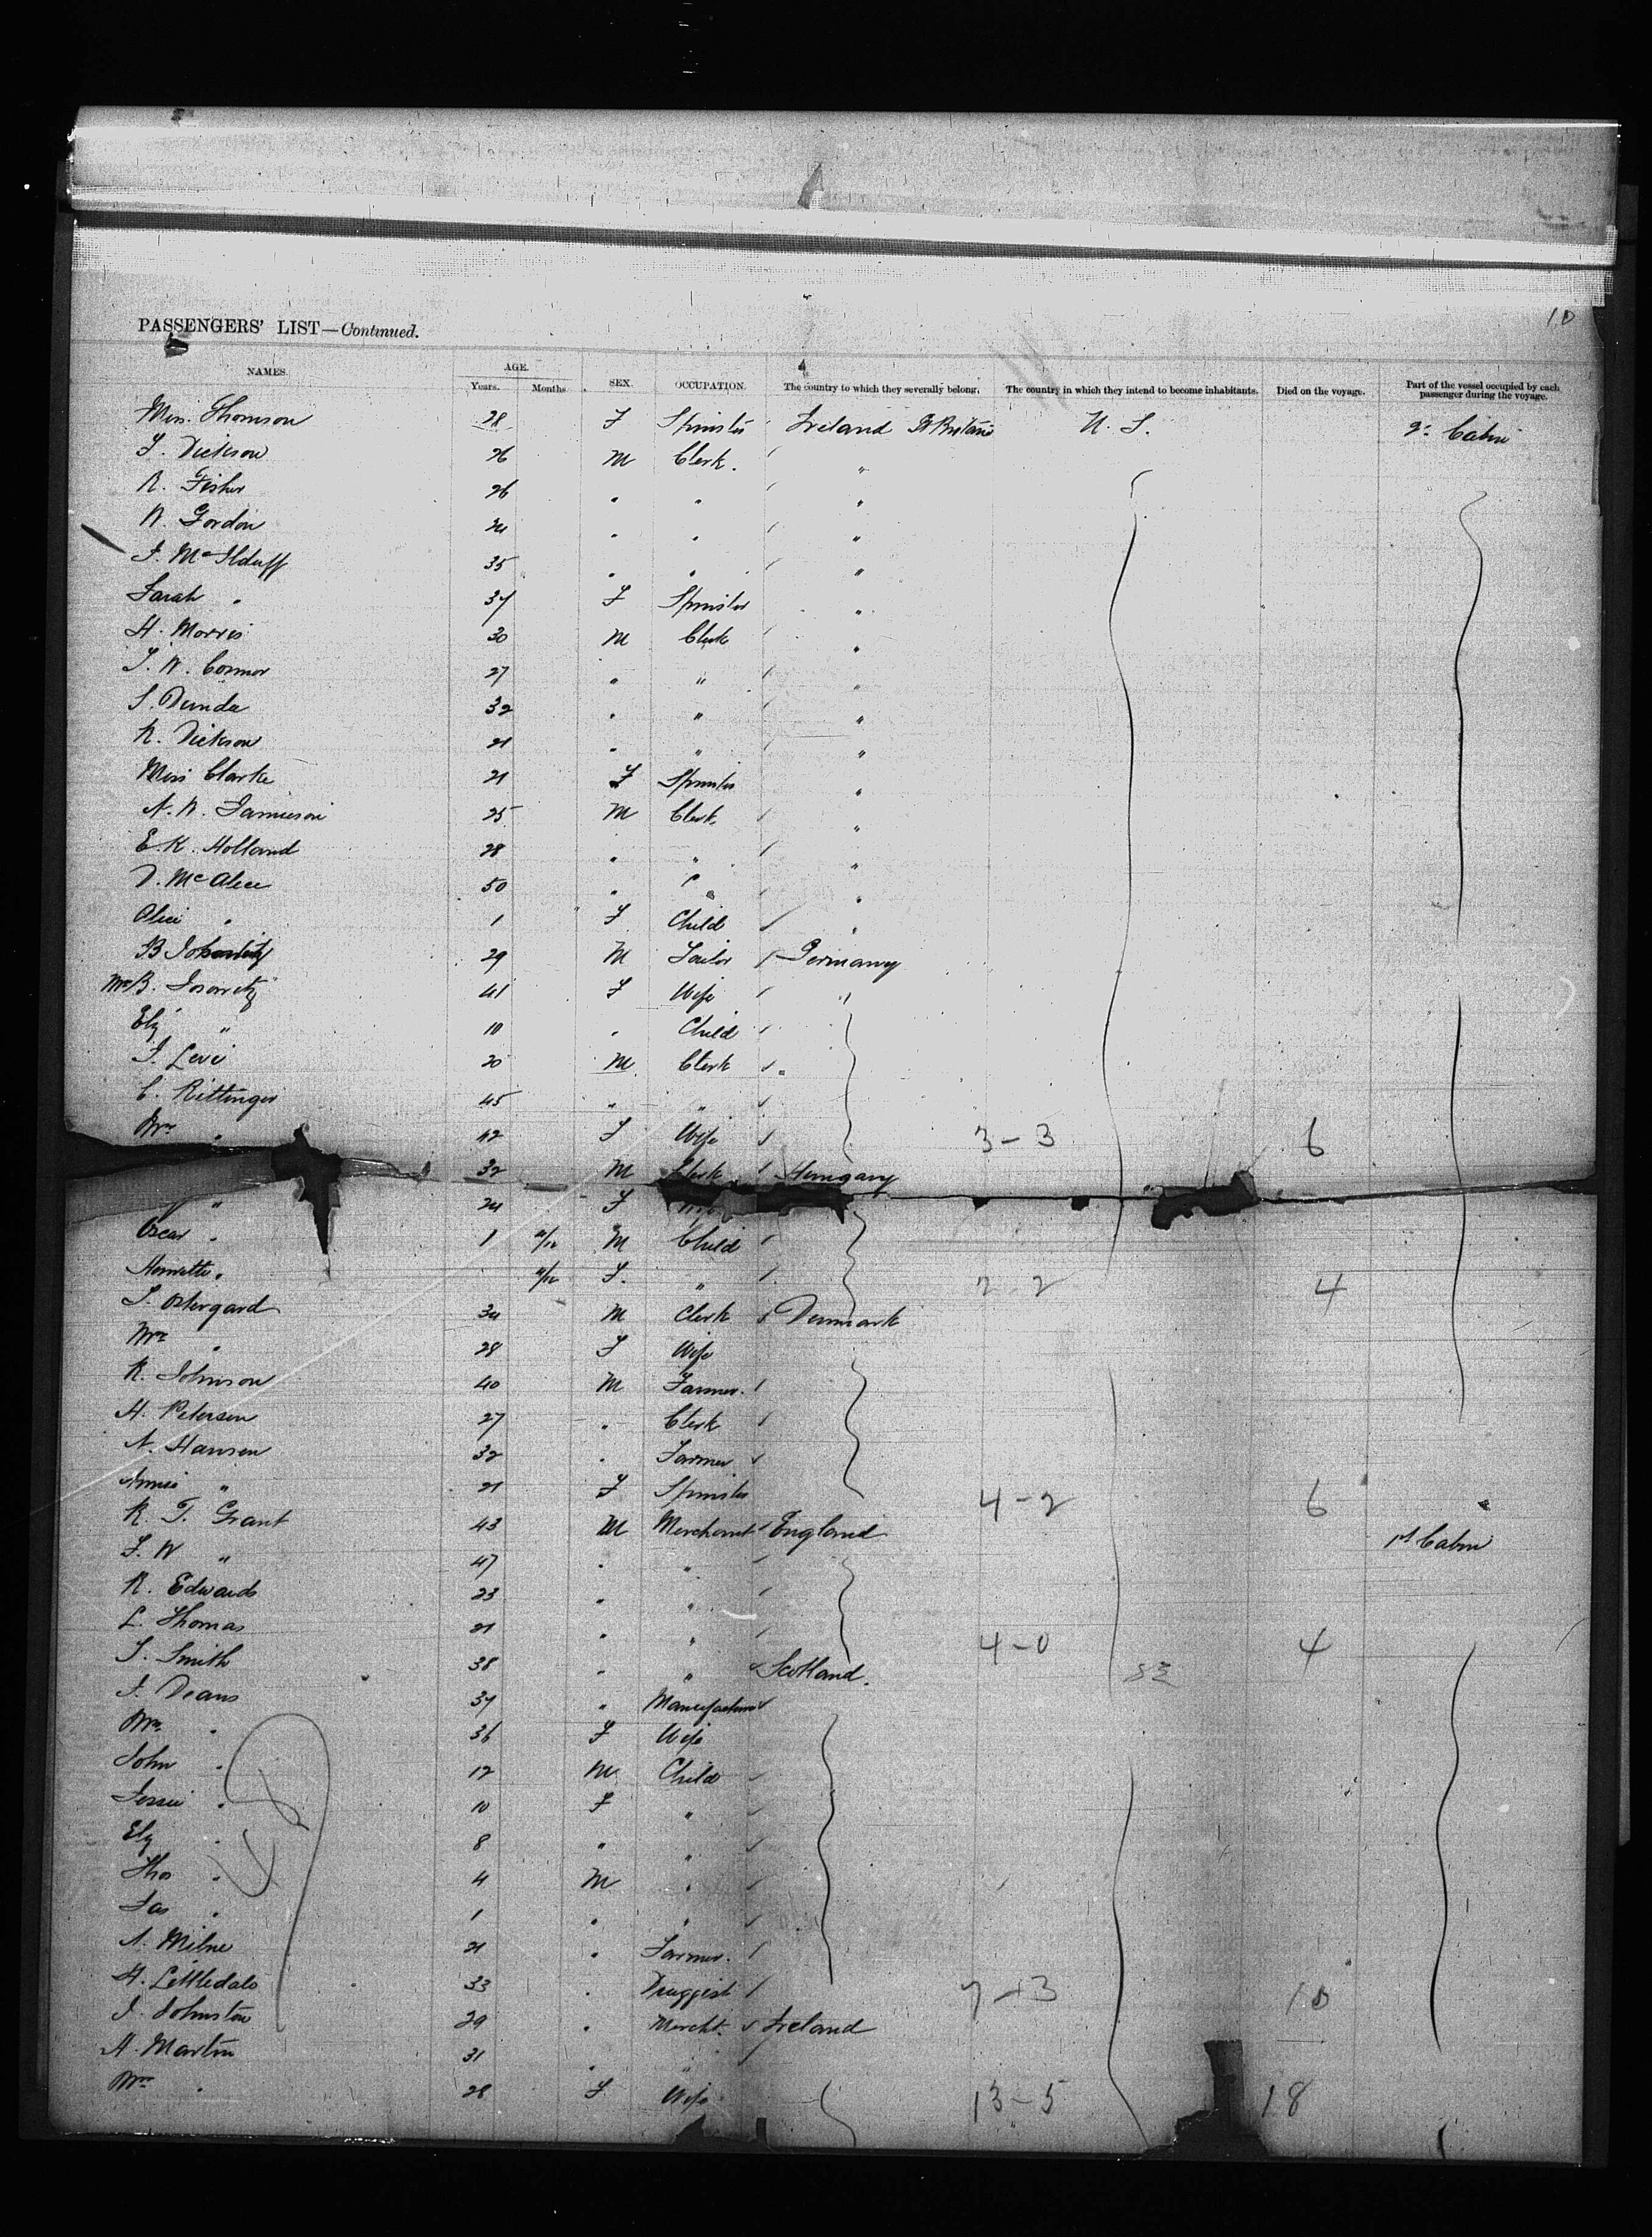 10
PASSENGERS' LIST—Continued.
NAMES. AGE. Years. Months. SEX. OCCUPATION. The country to which they severally belong. The country in which they intend to become inhabitants. Died on the voyage. Part of the vessel occupied by each passenger during the voyage.
Miss Thomson 28 F Spinster Ireland U. S. 2d Cabin
T. Dickson 26 M Clerk. "
R. Fisher 26 " " "
W. Gordon 24 " " "
35 " " "
Sarah " 37 F Spinster "
H. Morris 30 M Clerk "
T. W. Connor 27 " " "
S. 32 " " "
R. Dickson 21 " " "
Miss Clarke 21 F Spinster "
A. W. Jamieson 25 M Clerk "
E. K. Holland 28 " " "
D. McAlice 50 " " "
" 1 F Child "
B 29 M Tailor Germany
Mrs B. 41 F Wife "
Elz " 10 " Child
I. Levi 20 M Clerk "
C. Rittinger 45 " "
Mrs " 42 F Wife 3-3 6
32 M Clerk Hungary
" 24 F
Oscar " 1 11/12 M Child
" 11/12 F. " 2 2 4
S. Ostergard 34 M Clerk Denmark
Mrs " 28 F Wife
R. Johnson 40 M Farmer.
H. Petersen 27 " Clerk
N. Hansen 32 " Farmer
Annie " 21 F Spinster 4-2 6
R. T. Grant 43 M Merchant England 1st Cabin
F. W " 47 " "
R. Edwards 23 " "
L. Thomas 21 " " 4-0 4
T. Smith 38 " " Scotland.
J. Deans 37 " Manufacturer
Mrs " 36 F Wife
John " 12 M Child
Jessie " 10 F "
Elz " 8 " "
Thos " 4 M "
Jas " 1 " "
A. Milne 21 " Farmer.
H. Littledale 33 " Druggist 7-3 10
J. Johnston 29 " Mercht. Ireland
A. Martin 31 " "
Mrs " 28 F Wife 13-5 18